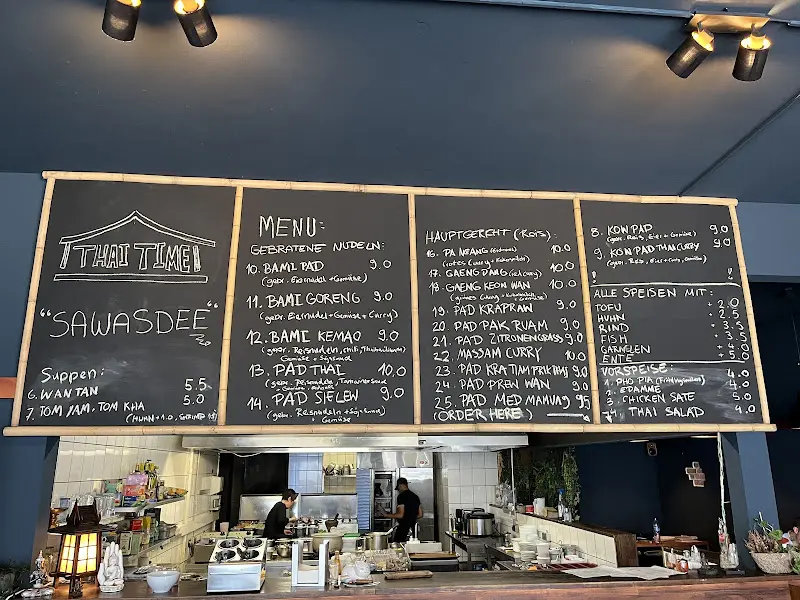 THAI TIME!
"SAWASDEE"
Suppen:
6. WAN TAN 5.5
7. TOM JAM, TOM KHA 5.0
MENU:
GEBRATENE NUDELN:
10. BAMI PAD 9.0
(gebr. Eiernudel + Gemüse)
11. BAMI GORENG 9.0
(gebr. Eiernudel + Gemüse + Curry)
12. BAMI KEMAO 9.0
(gebr. Reisnudeln, chili,
Gemüse + Sojasaud
13. PAD THAI 10.0
(gebr. Reisnudeln, Tamarinsaud
14. PAD SIEEW 9.0
(gebr. Reisnudeln + Sojasaud
+ Gemüse
HAUPTGERICHT (Reis):
16. PANAENG 10.0
(rotes Curry + Kokosmilch
17. GAENG DANG (red curry) 10.0
18. GAENG KEOW WAN 10.0
19. PAD KRAPRAW 9.0
20 PAD PAK RUAM 9.0
21. PAD ZITRONENGRASS 9.0
22. MASSAM CURRY 10.0
23. PAD KRA TIAM PRIK THAI 9.0
24. PAD PREW WAN 9.0
25. PAD MED MAMUANG 9.5
(ORDER HERE)
8. KOW PAD 9.0
(gebr. Reis, Eier + Gemüse)
9. KOW PAD THAI CURRY 9.0
(gebr. Reis, Eier + Curry, Gemüse)
ALLE SPEISEN MIT:
TOFU + 2.0
HUHN + 2.5
RIND + 3.5
FISH + 3.5
GARNELEN + 4.0
ENTE + 5.0
VORSPEISE:
1. PHO PIA (Frühlingsrollen) 4.0
2. EDAMME 4.0
3. CHICKEN SATE 5.0
4. THAI SALAD 4.0